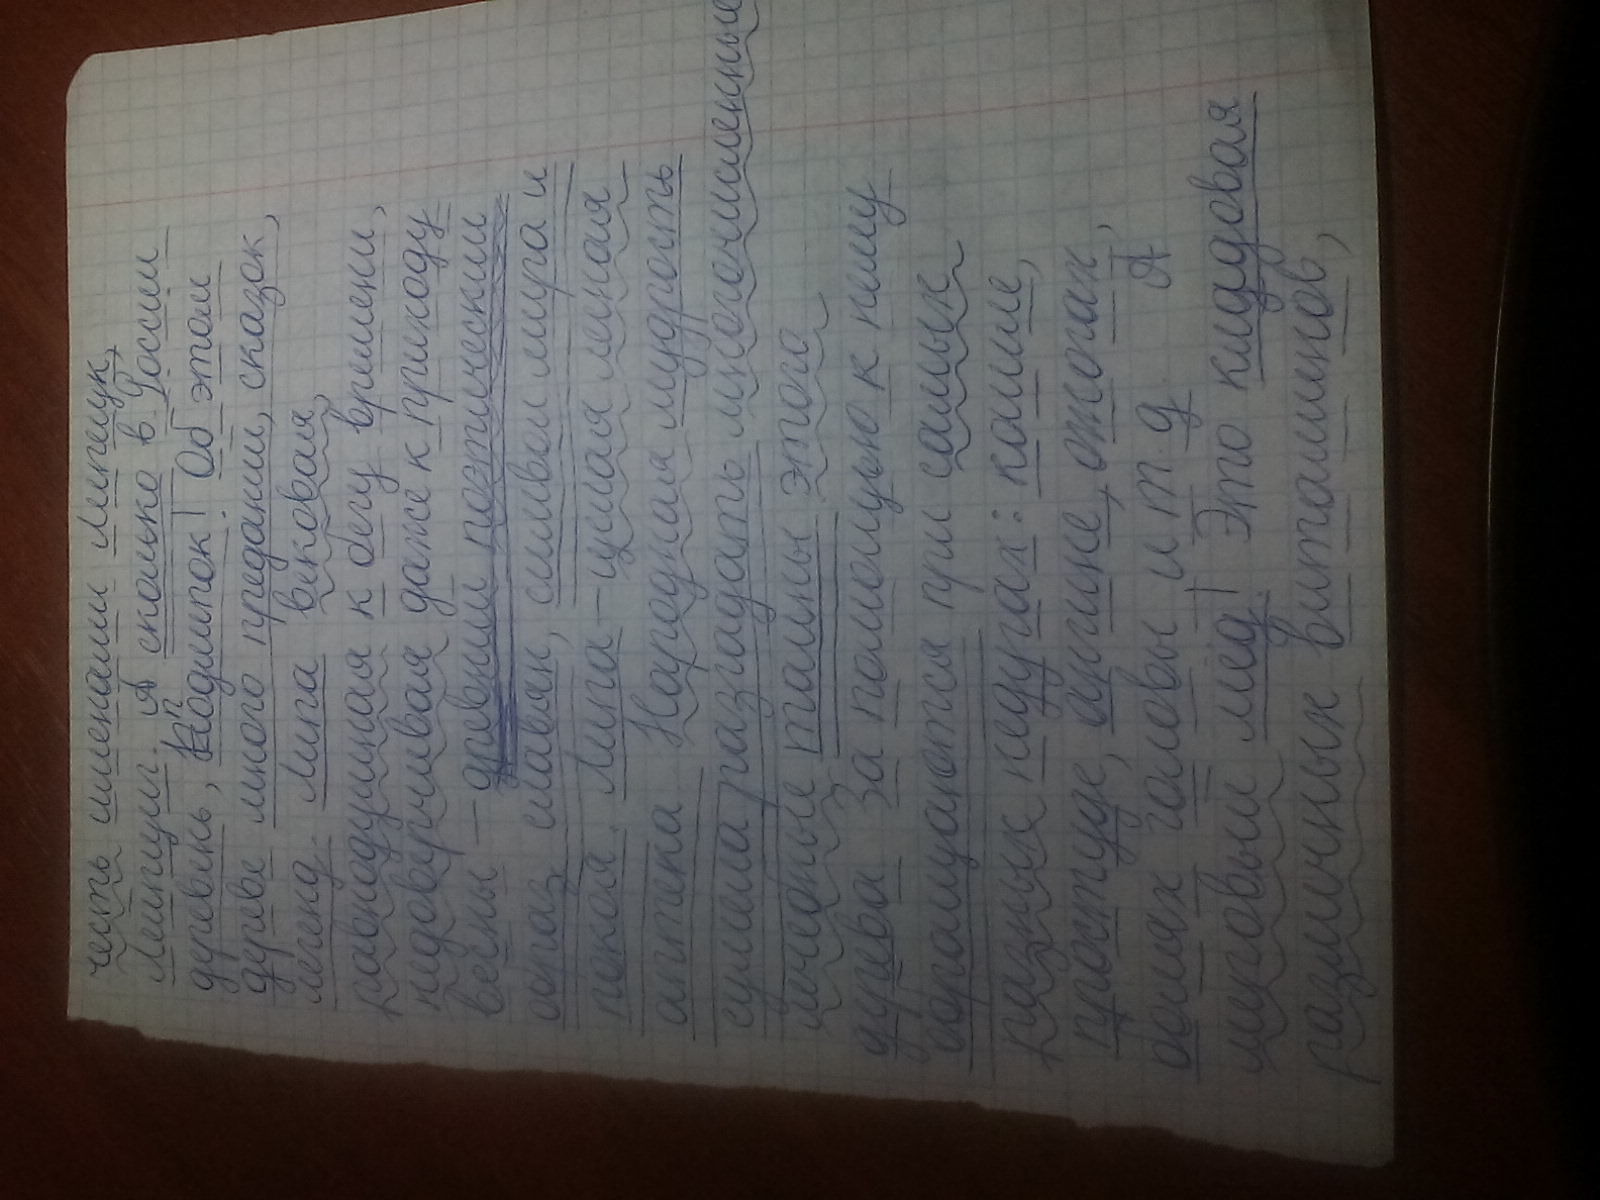 честь именами Липецук,
Липицы. А сколько в России
деревень, Подлипок! Об этом
дереве много преданий, сказок,
легенд. Липа вековая,
равнодушная к бегу времени,
недоверчивая даже к приходу
весны – древний поэтический
образ славян, символ мира и
покоя. Липа – целая лесная
аптека Народная мудрость
сумела разгадать многочисленные
лечебные тайны этого
дерева За помощью к нему
обращаются при самых
разных недугах: кашле,
простуде, ангине, ожогах,
болях головы и т. д. А
липовый мёд! Это кладовая
различных витаминов,